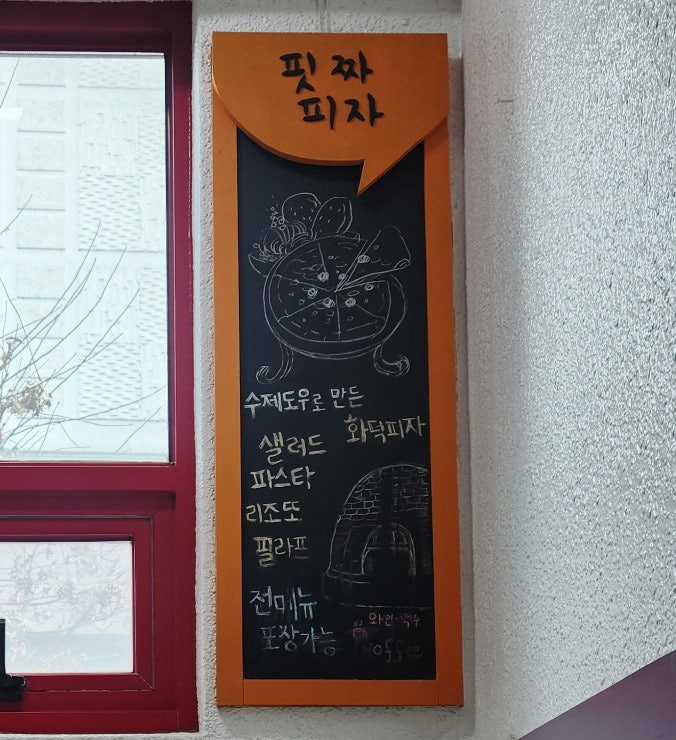 핏짜
피자
수제도우로 만든
화덕피자
샐러드
파스타
리조또
필라프
전메뉴
포장가능
와인·맥주
Coffee